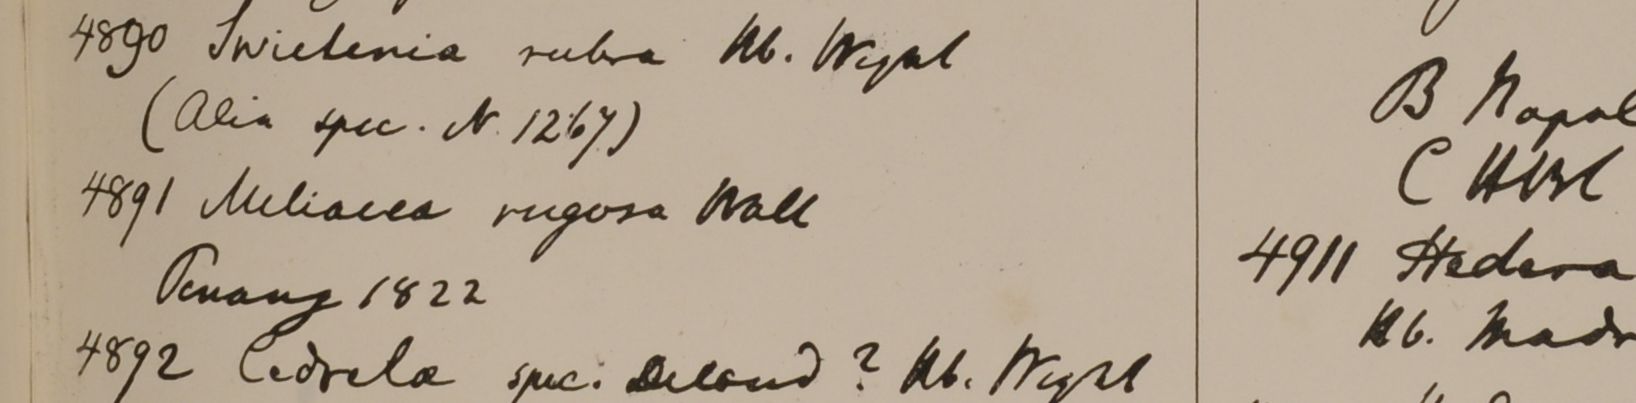 4890 Swietenia rubra Hb. Wight
(Alia spec. N. 1267)
4891 Meliacea rugosa Wall
Penang 1822
4892 Cedrela spec. ? Hb. Wight
B Napal
C HBC
4911 Hedera
Hb. Madr